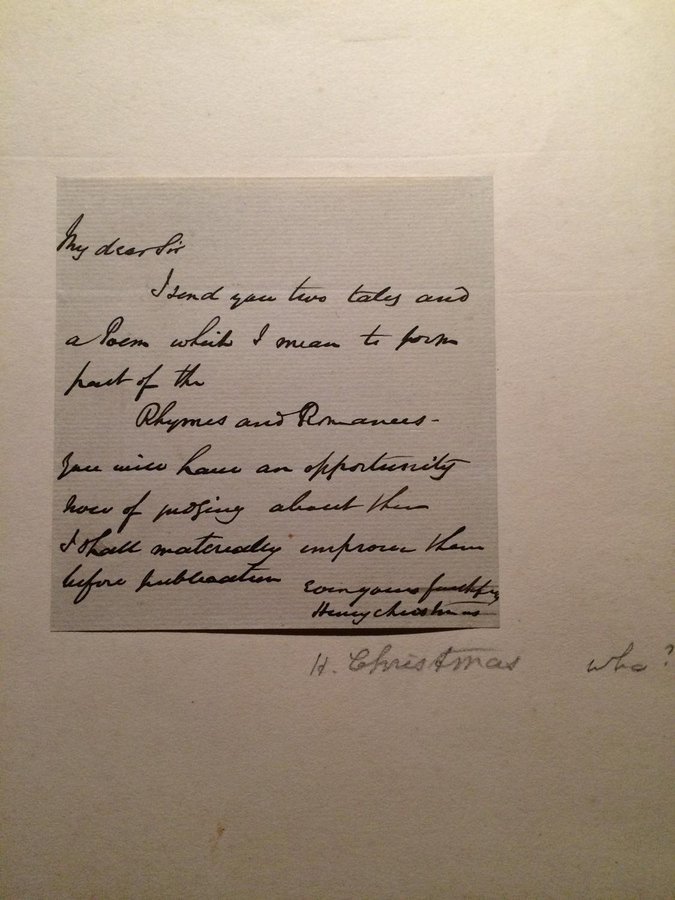 My dear Sir
I send you two tales and
a Poem which I mean to form
part of the
Rhymes and Romances-
you will have an opportunity
now of judging about them
I shall materially improve them
before publication
Ever yours faithfully
Henry Christmas
H. Christmas who?